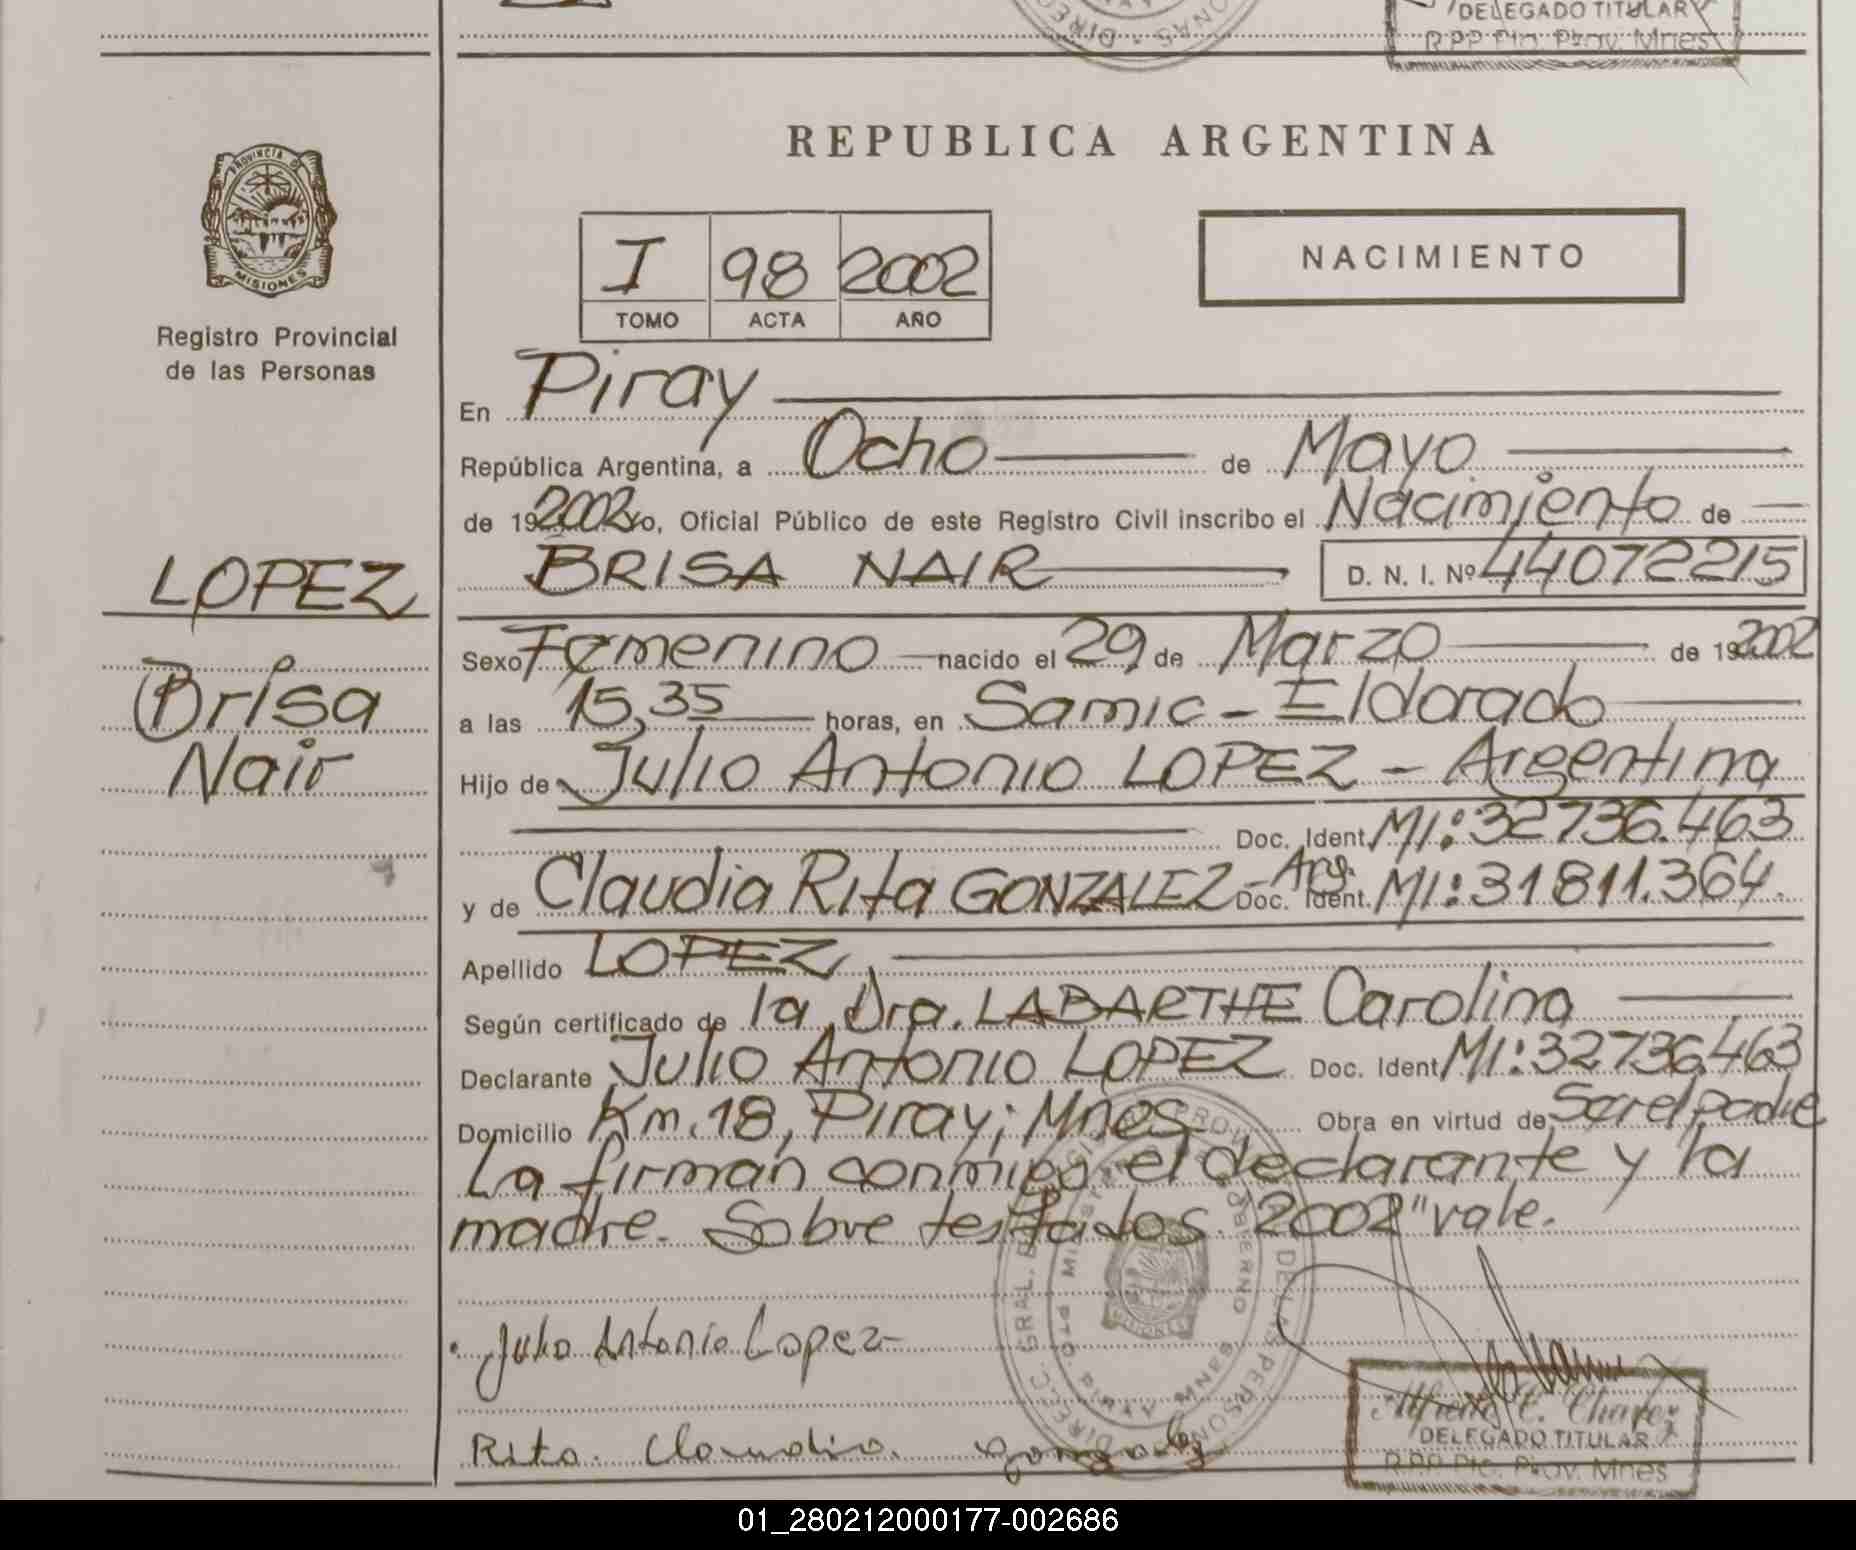 DELEGADO TITULAR
R.P.P. Pto. Piray. Mnes
REPUBLICA ARGENTINA
PROVINCIA DE
MISIONES
Registro Provincial
de las Personas
I 98 2002
TOMO ACTA AÑO
NACIMIENTO
En Piray
República Argentina, a Ocho de Mayo
de 19 2002 Yo, Oficial Público de este Registro Civil inscribo el Nacimiento de
BRISA NAIR D. N. I. Nº 44072215
LOPEZ
Brisa
Nair
Sexo Femenino nacido el 29 de Marzo de 19 2002
a las 15,35 horas, en Samic - Eldorado
Hijo de Julio Antonio LOPEZ - Argentina
Doc. Ident. MI: 32736.463
y de Claudia Rita GONZALEZ - Arg. Doc. Ident. MI: 31811.364.
Apellido LOPEZ
Según certificado de la Dra. LABARTHE Carolina
Declarante Julio Antonio LOPEZ Doc. Ident. MI: 32736.463
Domicilio Km. 18, Piray; Mnes Obra en virtud de Ser el padre
La firman conmigo el declarante y la
madre. Sobre testados 2002" vale.
Julio Antonio Lopez
Rita Claudia
Alfredo C. Chavez
DELEGADO TITULAR
R.P.P. Pto. Piray. Mnes
01_280212000177-002686